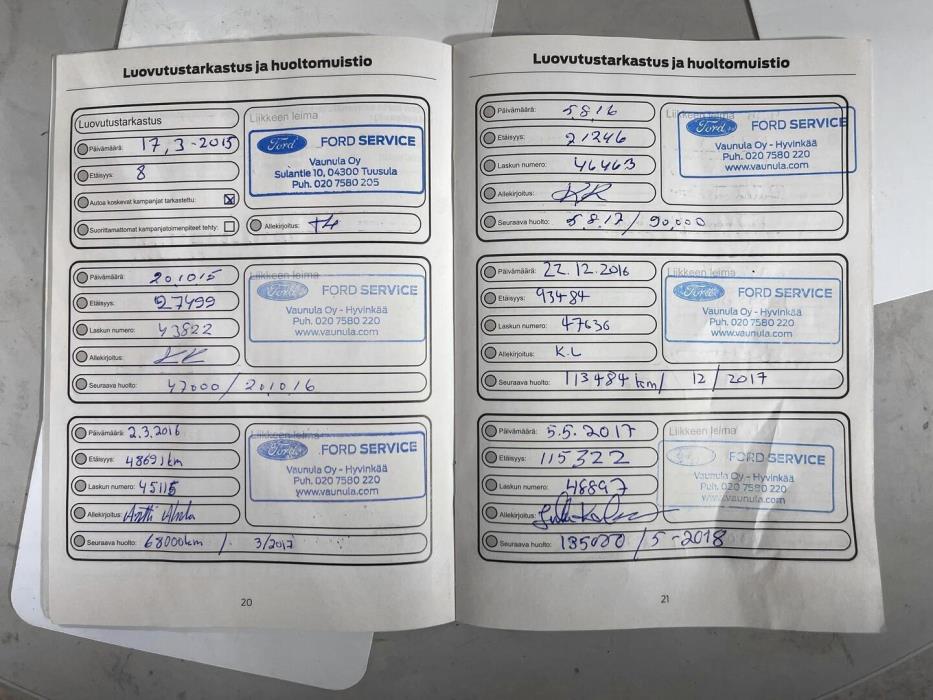 Luovutustarkastus ja huoltomuistio
Luovutustarkastus
Päivämäärä: 17,3-2015
Etäisyys: 8
Autoa koskevat kampanjat tarkastettu: X
Suorittamattomat kampanjatoimenpiteet tehty:
Liikkeen leima
Ford FORD SERVICE
Vaunula Oy
Sulantie 10, 04300 Tuusula
Puh. 020 7580 205
Allekirjoitus:
Päivämäärä: 20.10.15
Etäisyys: 27499
Laskun numero: 43822
Allekirjoitus:
Seuraava huolto: 47000 / 20.10.16
Liikkeen leima
Ford FORD SERVICE
Vaunula Oy - Hyvinkää
Puh. 020 7580 220
www.vaunula.com
Päivämäärä: 2.3.2016
Etäisyys: 48691km
Laskun numero: 45115
Allekirjoitus: Antti
Seuraava huolto: 68000km / 3/2017
Liikkeen leima
Ford FORD SERVICE
Vaunula Oy - Hyvinkää
Puh. 020 7580 220
www.vaunula.com
20
Luovutustarkastus ja huoltomuistio
Päivämäärä: 5.8.16
Etäisyys: 21246
Laskun numero: 46463
Allekirjoitus: RR
Seuraava huolto: 5.8.17/ 90,000
Liikkeen leima
Ford FORD SERVICE
Vaunula Oy - Hyvinkää
Puh. 020 7580 220
www.vaunula.com
Päivämäärä: 22.12.2016
Etäisyys: 93484
Laskun numero: 47636
Allekirjoitus: K.L
Seuraava huolto: 113484 km/ 12/2017
Liikkeen leima
Ford FORD SERVICE
Vaunula Oy - Hyvinkää
Puh. 020 7580 220
www.vaunula.com
Päivämäärä: 5.5.2017
Etäisyys: 115322
Laskun numero: 48897
Allekirjoitus:
Seuraava huolto: 135000 / 5-2018
Liikkeen leima
Ford FORD SERVICE
Vaunula Oy - Hyvinkää
Puh. 020 7580 220
www.vaunula.com
21